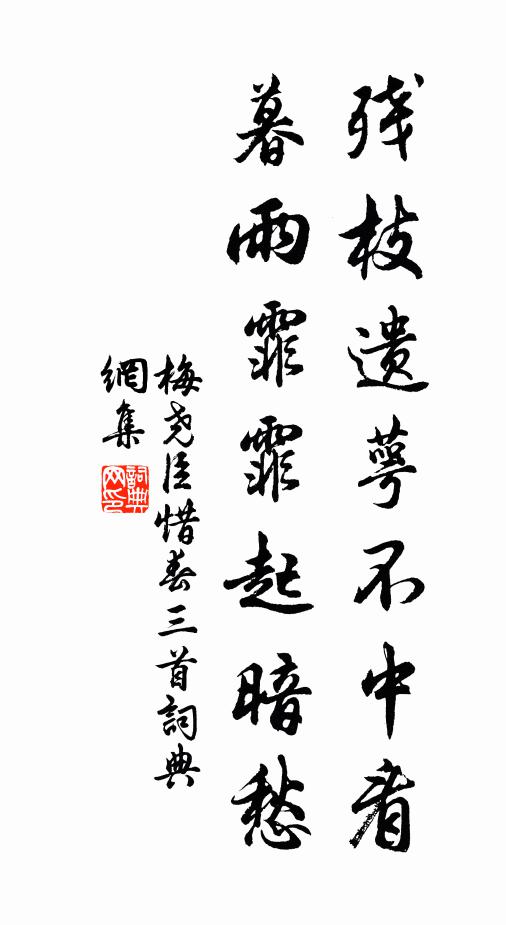 残枝遗萼不中看
暮雨霏霏起暗愁
梅尧臣惜春三首詞典
網集
詞典網印